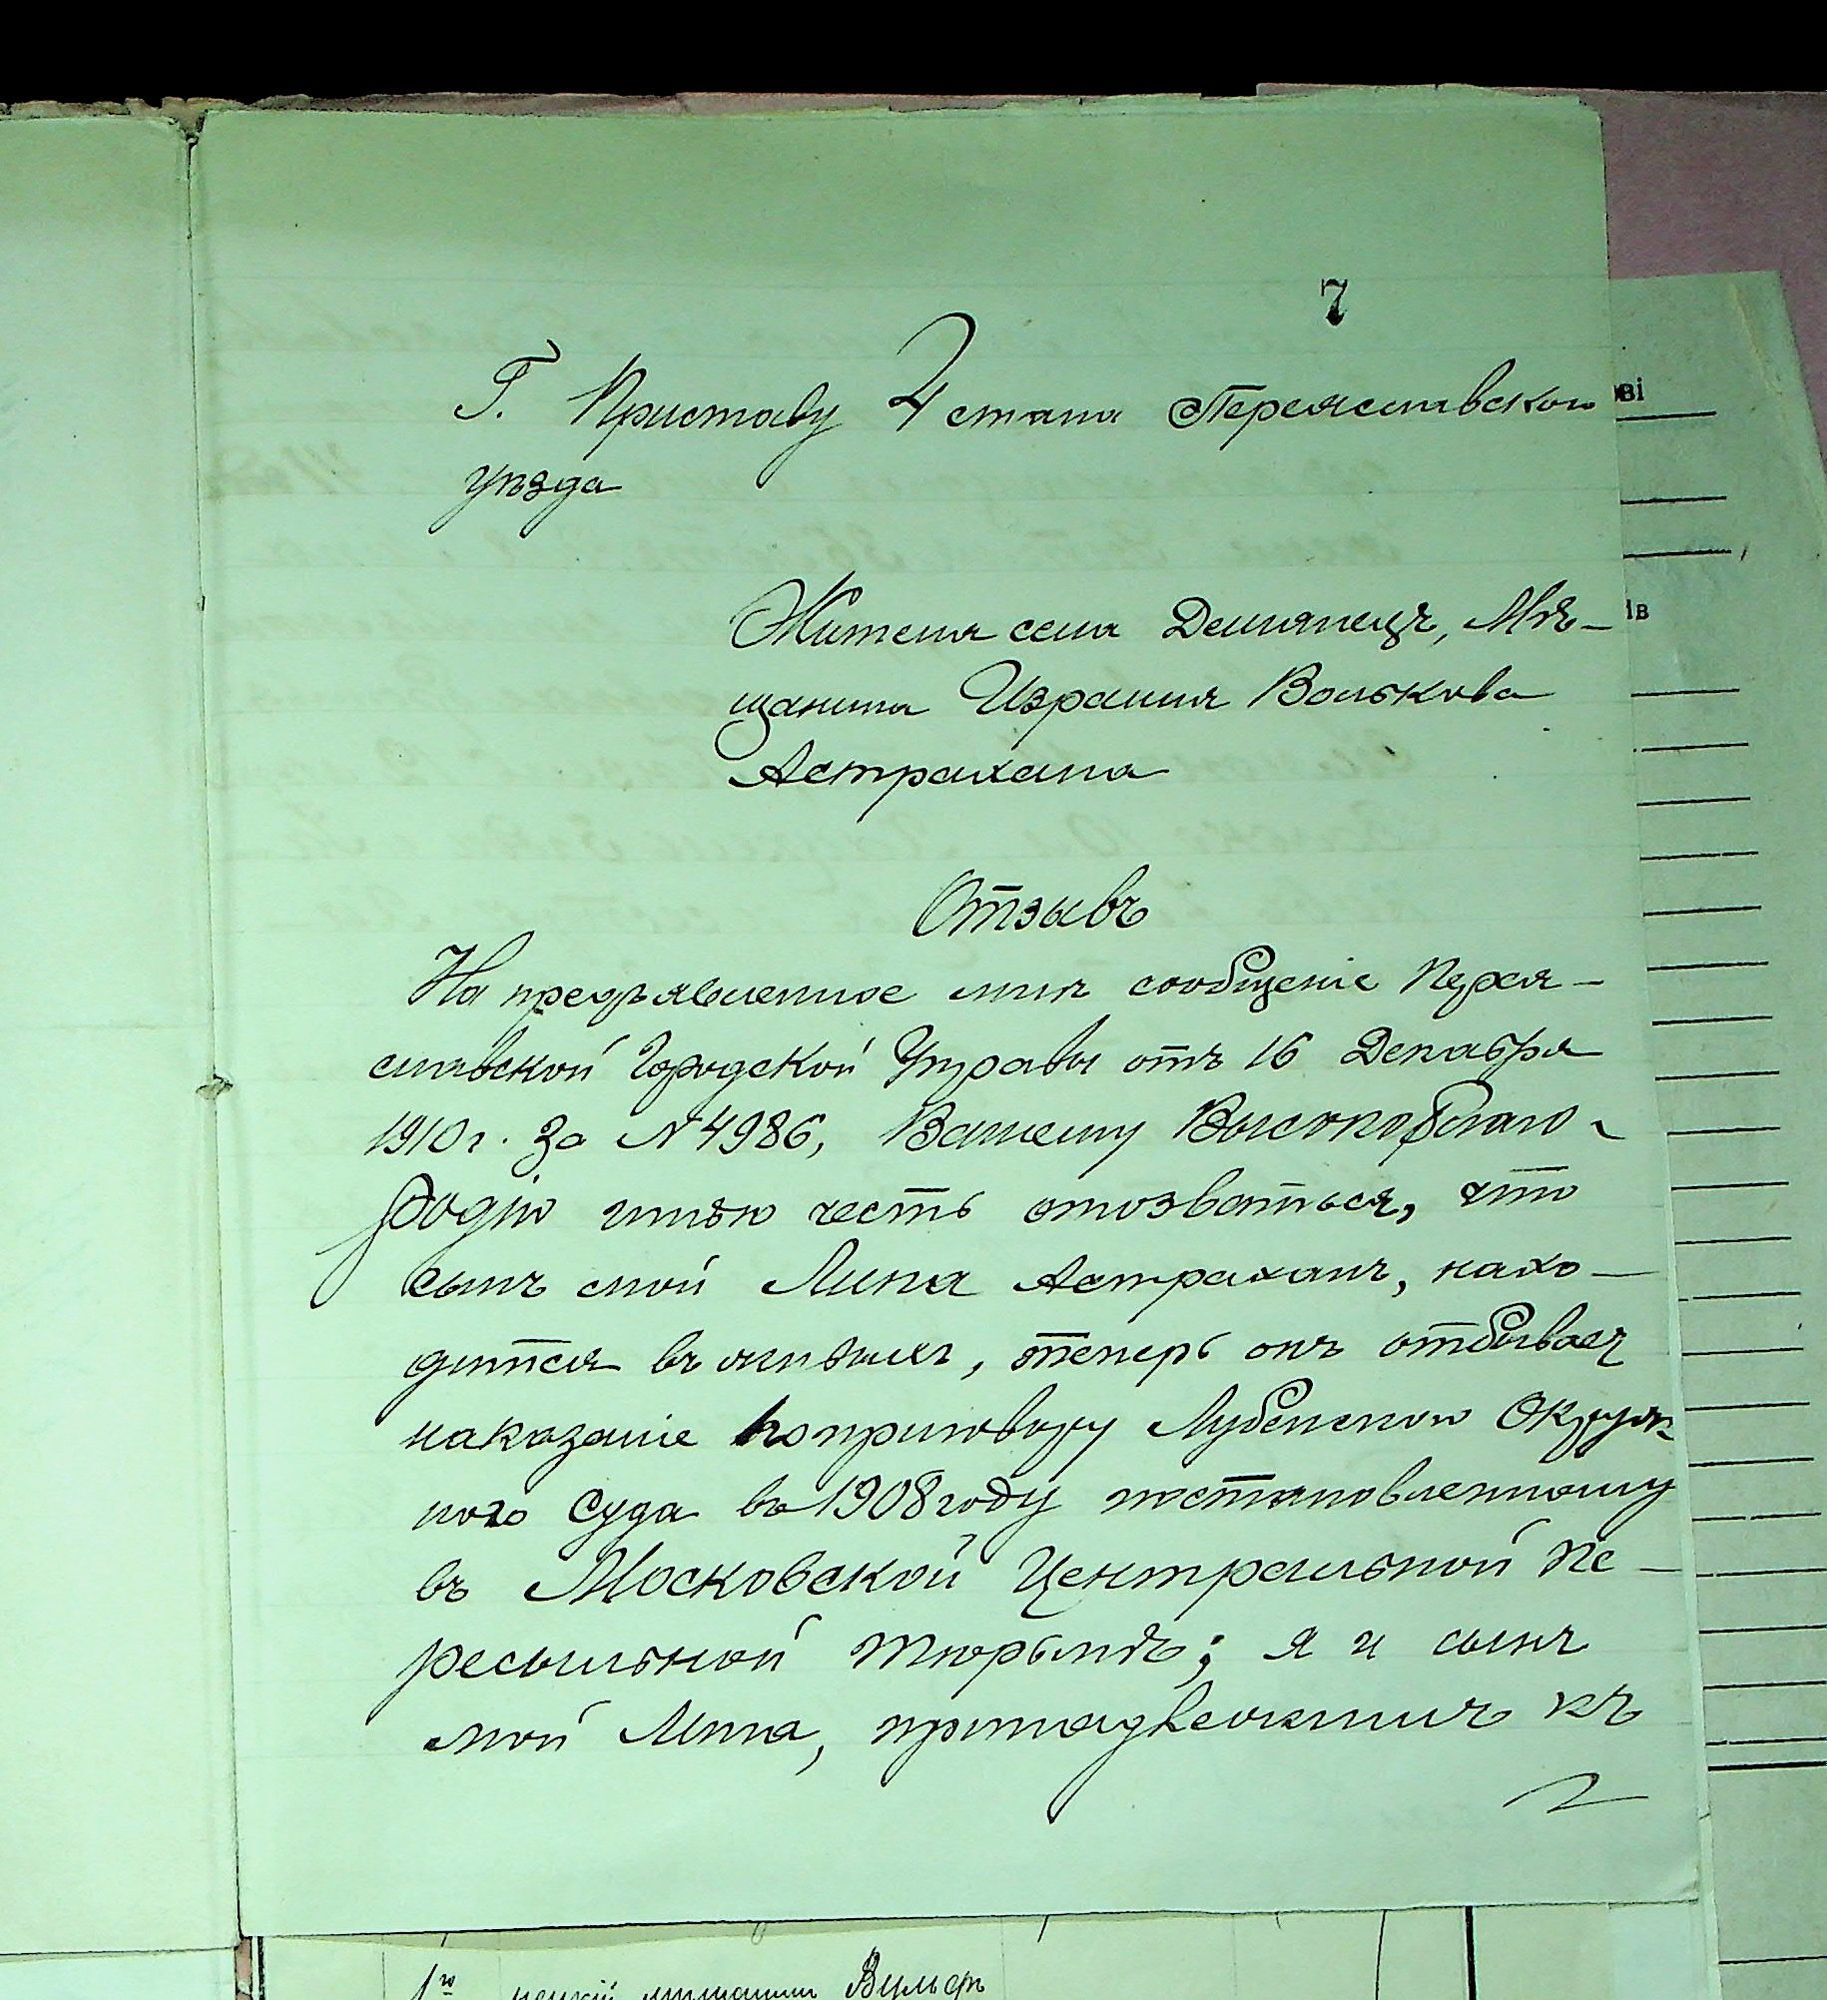 7
Г. Приставу 4 стана Переяславского
уѣзда
Жителя села Демянецъ, Мѣ-
щанина Израиля Волькова
Астрахана
Отзывъ
На предъявленное мнѣ сообщеніе Перея-
славской Городской Управы отъ 16 Декабря
1910 г. за № 4986, Вашему Высокоблаго-
родію имѣю честь отозваться, что
сынъ мой Липа Астраханъ, нахо-
дится въ живыхъ, теперь онъ отбывает
наказаніе по приговору Лубенского Окруж-
ного Суда въ 1908 году постановленному
въ Московской Центральной Пе-
ресыльной тюрьмѣ; я и сынъ
мой Липа, принадлежимъ къ
1го мѣщанинъ Вульфъ
ві
ів